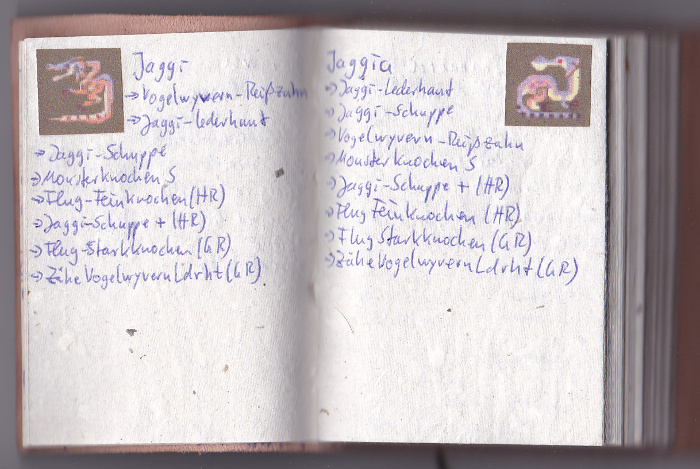 Jaggi
→ Vogelwyvern-Reißzahn
→ Jaggi-Lederhaut
→ Jaggi-Schuppe
→ Monsterknochen S
→ Flug-Feinknochen (HR)
→ Jaggi-Schuppe + (HR)
→ Flug-Starkknochen (GR)
→ Zähe Vogelwyvern Ldrht (GR)
Jaggia
→ Jaggi-Lederhaut
→ Jaggi-Schuppe
→ Vogelwyvern-Reißzahn
→ Monsterknochen S
→ Jaggi-Schuppe + (HR)
→ Flug Feinknochen (HR)
→ Flug Starkknochen (GR)
→ Zähe Vogelwyvern Ldrht (GR)